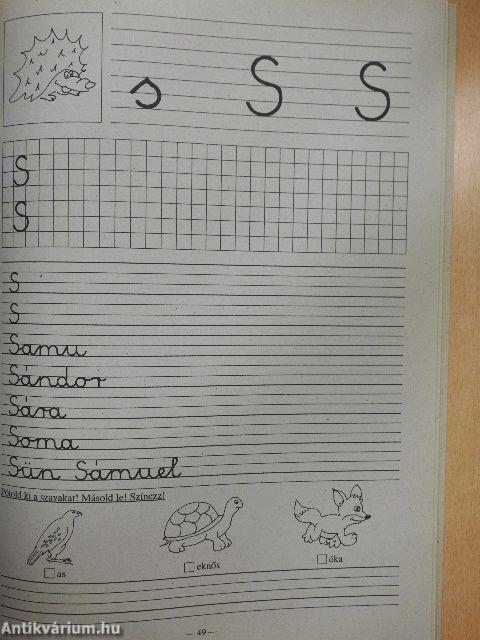 s S S
S
S
S
S
Samu
Sándor
Sára
Soma
Sün Sámuel
Pótold ki a szavakat! Másold le! Színezz!
as eknős óka
— 49 —
Antikvárium.hu